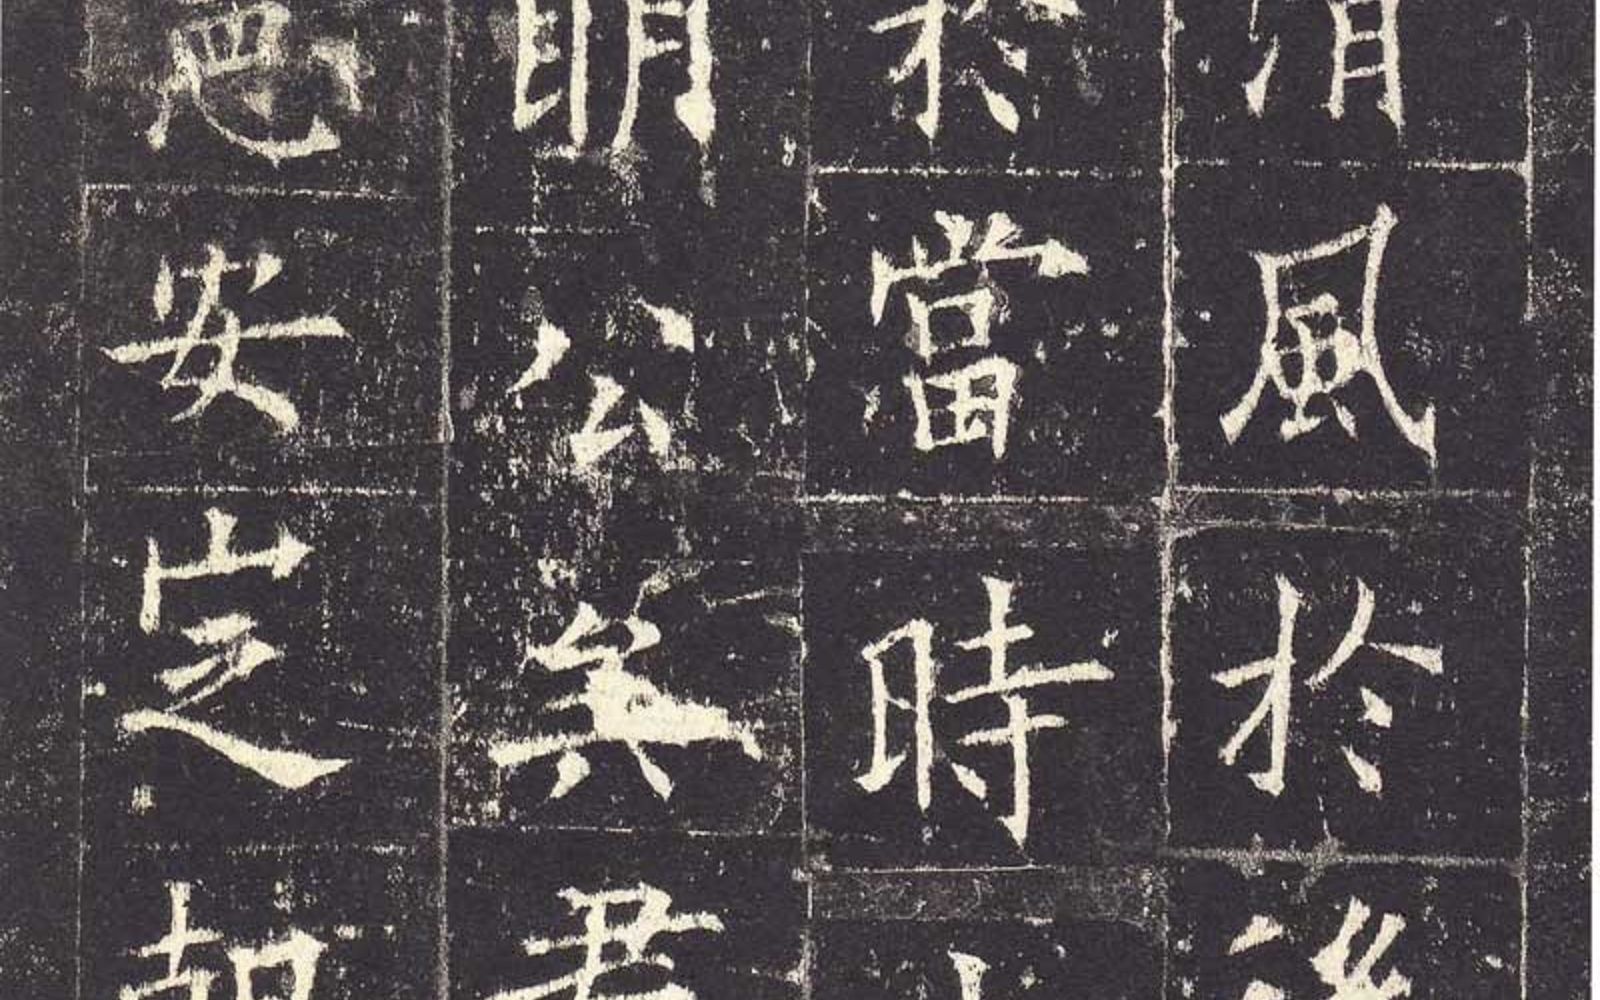 清風於後
於當時
明公矣君
憲安定朝